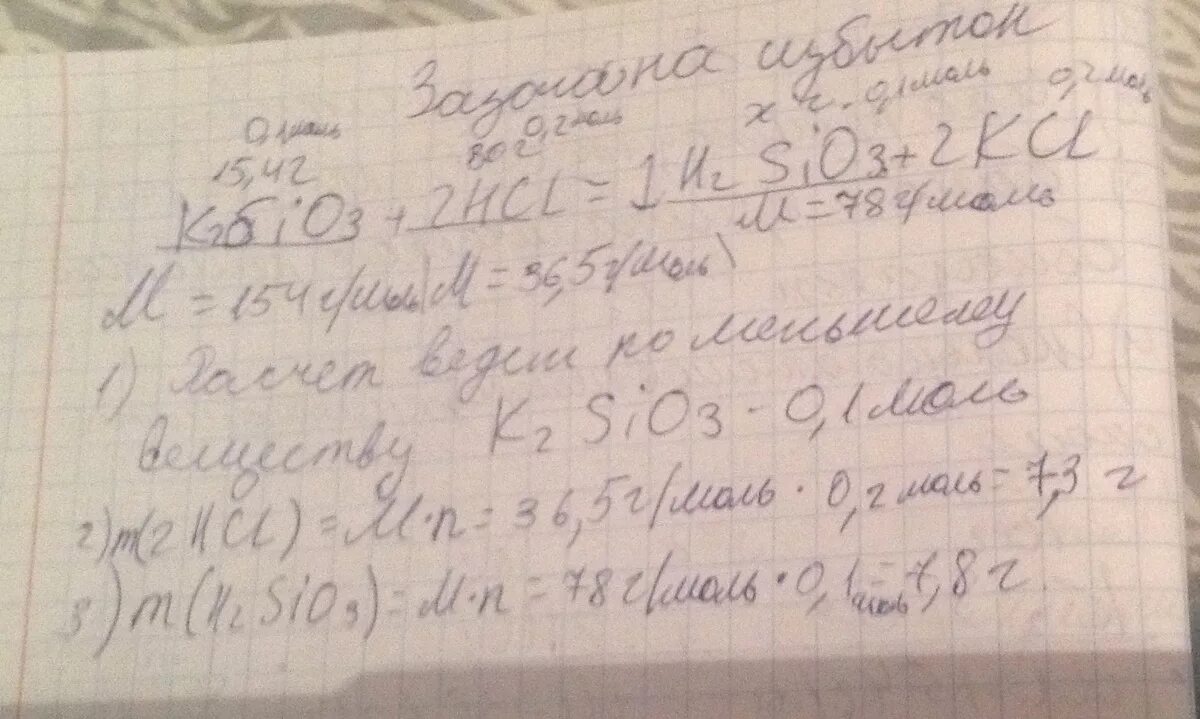 Задача на избыток
0,1 моль 0,2 моль х г. 0,1 моль 0,2 моль
15,4 г 80 г
K2SiO3 + 2HCl = 1 H2SiO3 + 2KCl
M = 154 г/моль M = 36,5 г/моль M = 78 г/моль
1) Расчет ведем по меньшему
веществу K2SiO3 - 0,1 моль
2) m(2HCl) = M·n = 36,5 г/моль · 0,2 моль = 7,3 г
3) m(H2SiO3) = M·n = 78 г/моль · 0,1 моль = 7,8 г